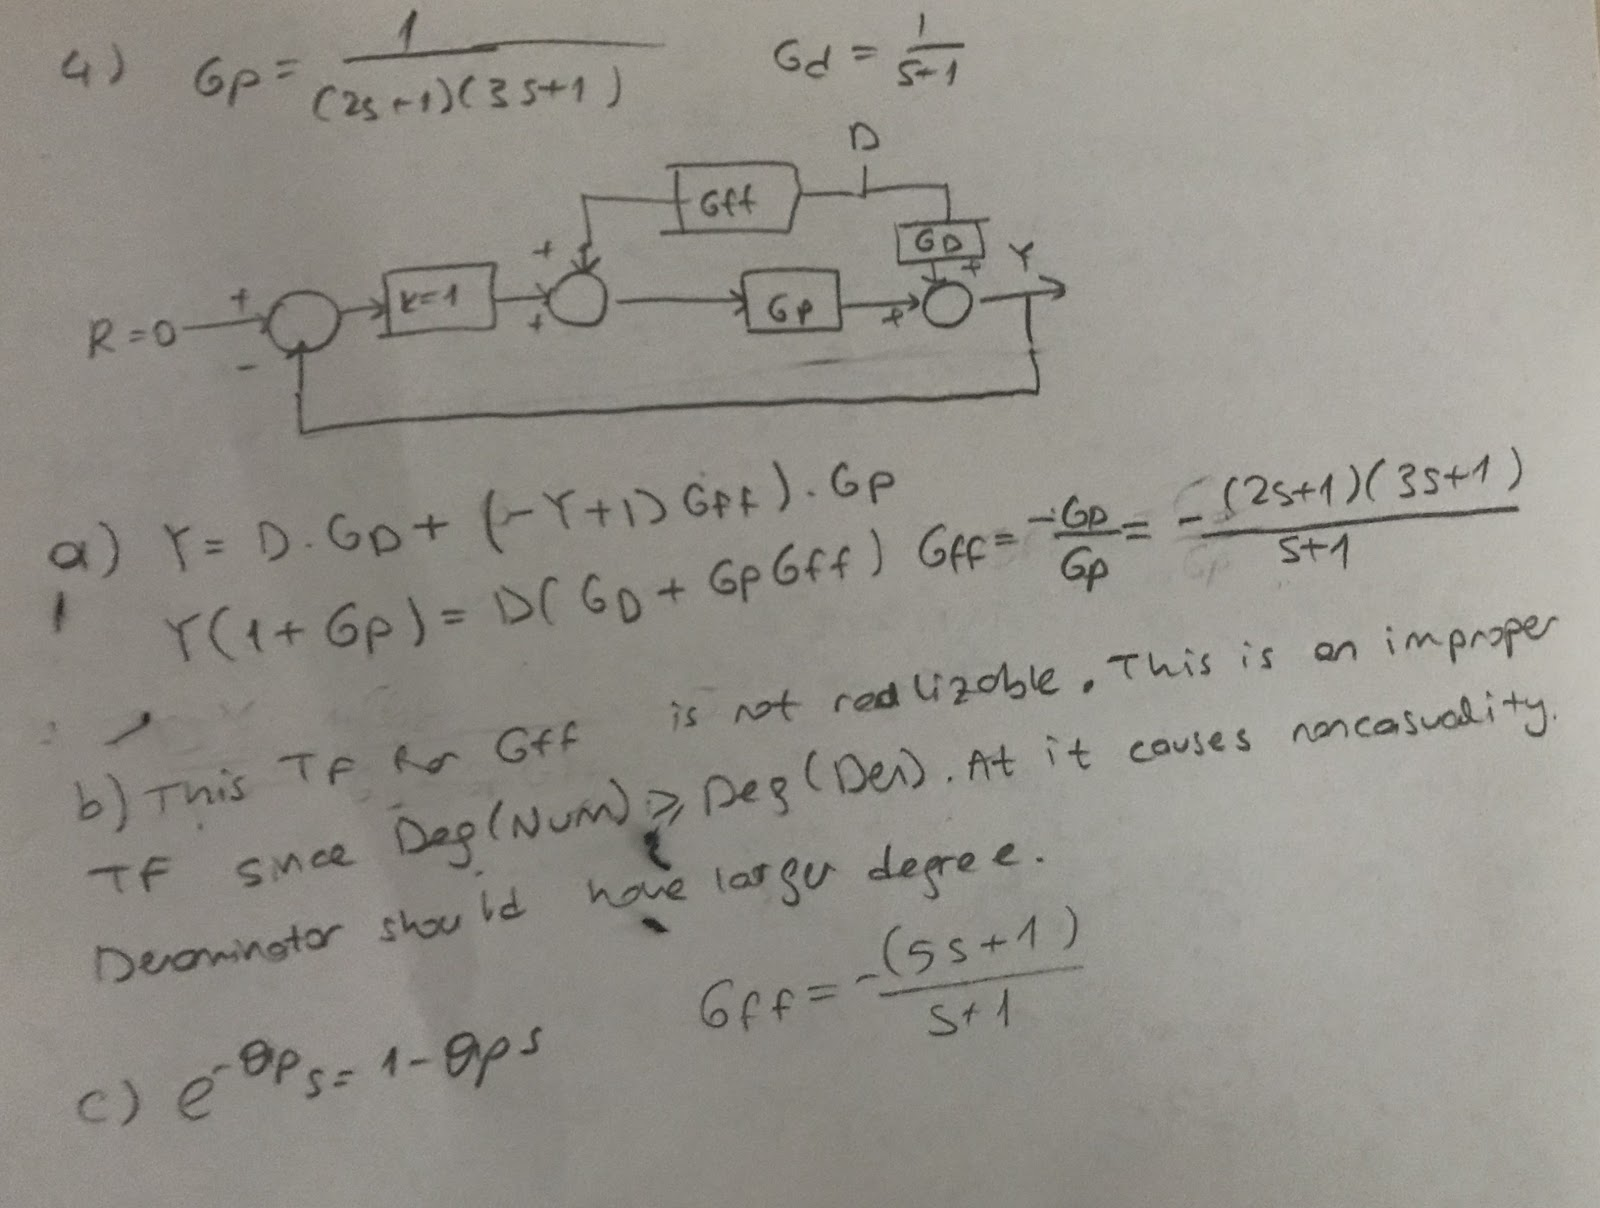 4) Gp = 1 / (2s+1)(3s+1)   Gd = 1 / s+1
D
Gff
GD
Y
R=0 + - K=1 + + Gp + +
a) Y = D.GD + (-Y+D Gff).Gp
Y(1+Gp) = D(GD + GpGff)   Gff = -GD / Gp = -(2s+1)(3s+1) / s+1
b) This TF for Gff is not realizable. This is an improper
TF since Deg(Num) ≥ Deg(Den). At it causes noncasuality.
Denominator should have larger degree.
Gff = -(5s+1) / s+1
c) e^-θps = 1-θps